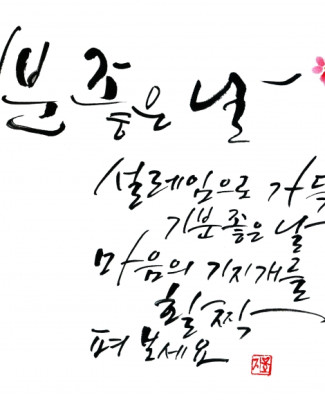 기분 좋은 날
설레임으로 가득
기분 좋은 날
마음의 기지개를
활짝
펴 보세요